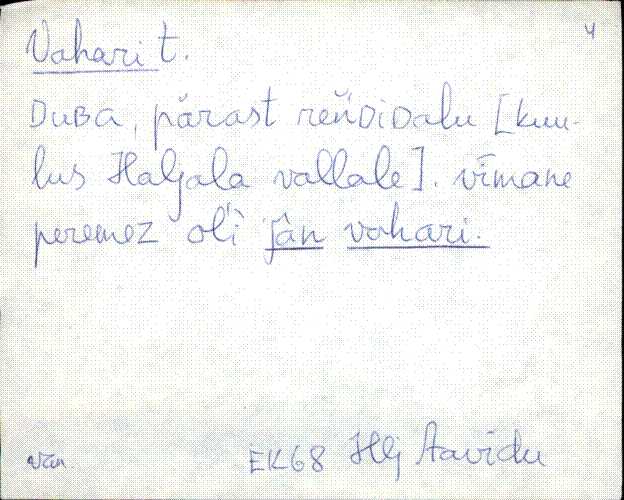 4
Vahari t.
DuBa, pārast reńDiDalu [kuu-
lus Haljala vallale]. vīmane
peremez oĺì jān vahari.
EK68 Hlj Aavidu